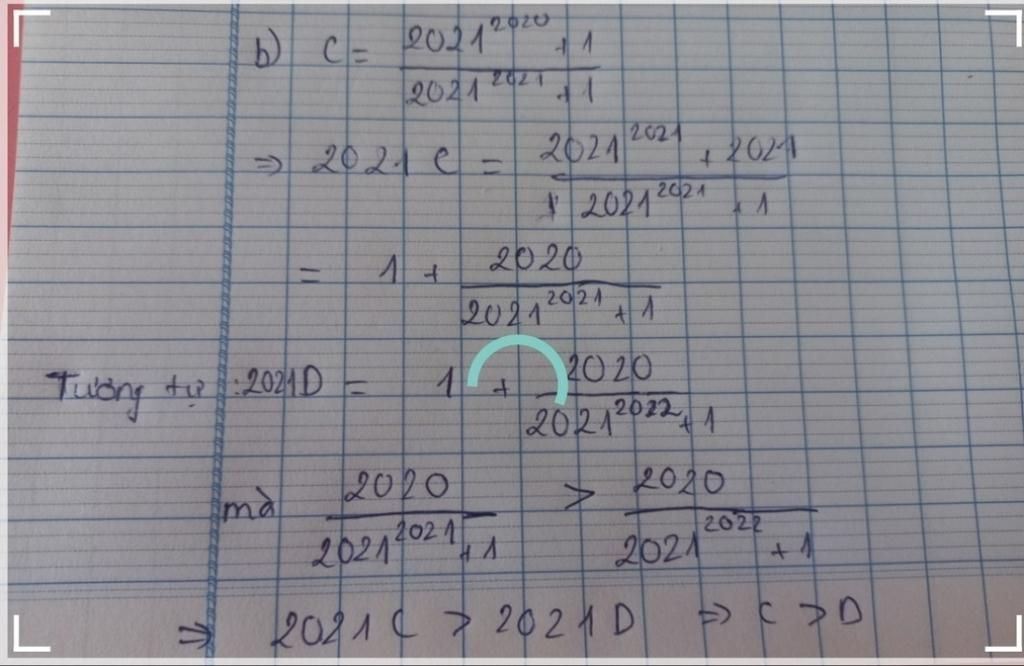 b) C = \frac{2021^{2020} + 1}{2021^{2021} + 1}
⇒ 2021 C = \frac{2021^{2021} + 2021}{2021^{2021} + 1}
= 1 + \frac{2020}{2021^{2021} + 1}
Tương tự : 2021D = 1 + \frac{2020}{2021^{2022} + 1}
mà \frac{2020}{2021^{2021} + 1} > \frac{2020}{2021^{2022} + 1}
⇒ 2021 C > 2021 D ⇒ C > D